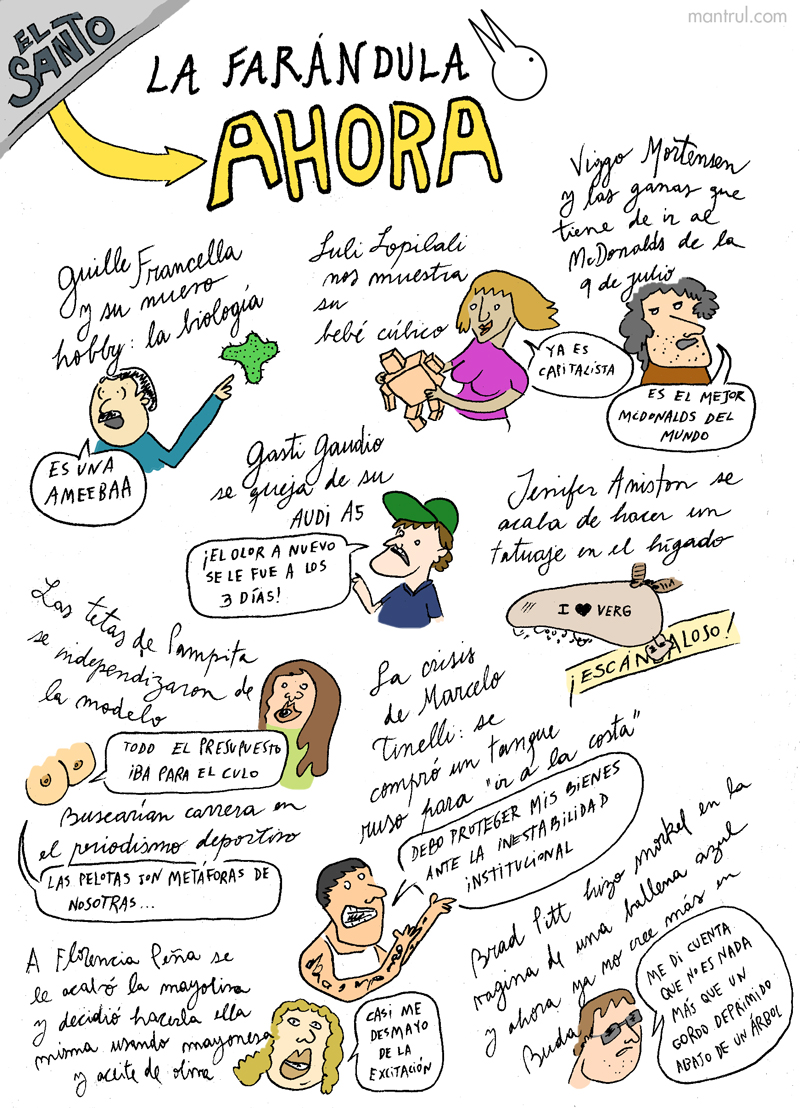 EL
SANTO
mantrul.com
LA FARÁNDULA
AHORA
Guille Francella
y su nuevo
hobby: la biología
ES UNA
AMEEBAA
Luli Lopilali
nos muestra
su
bebé cúbico
YA ES
CAPITALISTA
Viggo Mortensen
y las ganas que
tiene de ir al
McDonalds de la
9 de julio
ES EL MEJOR
MCDONALDS DEL
MUNDO
Gasti Gaudio
se queja de su
AUDI A5
¡EL OLOR A NUEVO
SE LE FUE A LOS
3 DÍAS!
Jenifer Aniston se
acaba de hacer un
tatuaje en el hígado
I ♥ VERG
¡ESCÁNDALOSO!
Las tetas de Pampita
se independizaron de
la modelo
TODO EL PRESUPUESTO
IBA PARA EL CULO
Buscarían carrera en
el periodismo deportivo
LAS PELOTAS SON METÁFORAS DE
NOSOTRAS...
La crisis
de Marcelo
Tinelli: se
compró un tanque
ruso para "ir a la costa"
DEBO PROTEGER MIS BIENES
ANTE LA INESTABILIDAD
INSTITUCIONAL
A Florencia Peña se
le acabó la mayoliva
y decidió hacerla ella
misma usando mayonesa
y aceite de oliva
CASI ME
DESMAYO
DE LA
EXCITACIÓN
Brad Pitt hizo snorkel en la
vagina de una ballena azul
y ahora ya no cree más en
Buda
ME DI CUENTA
QUE NO ES NADA
MÁS QUE UN
GORDO DEPRIMIDO
ABAJO DE UN ÁRBOL